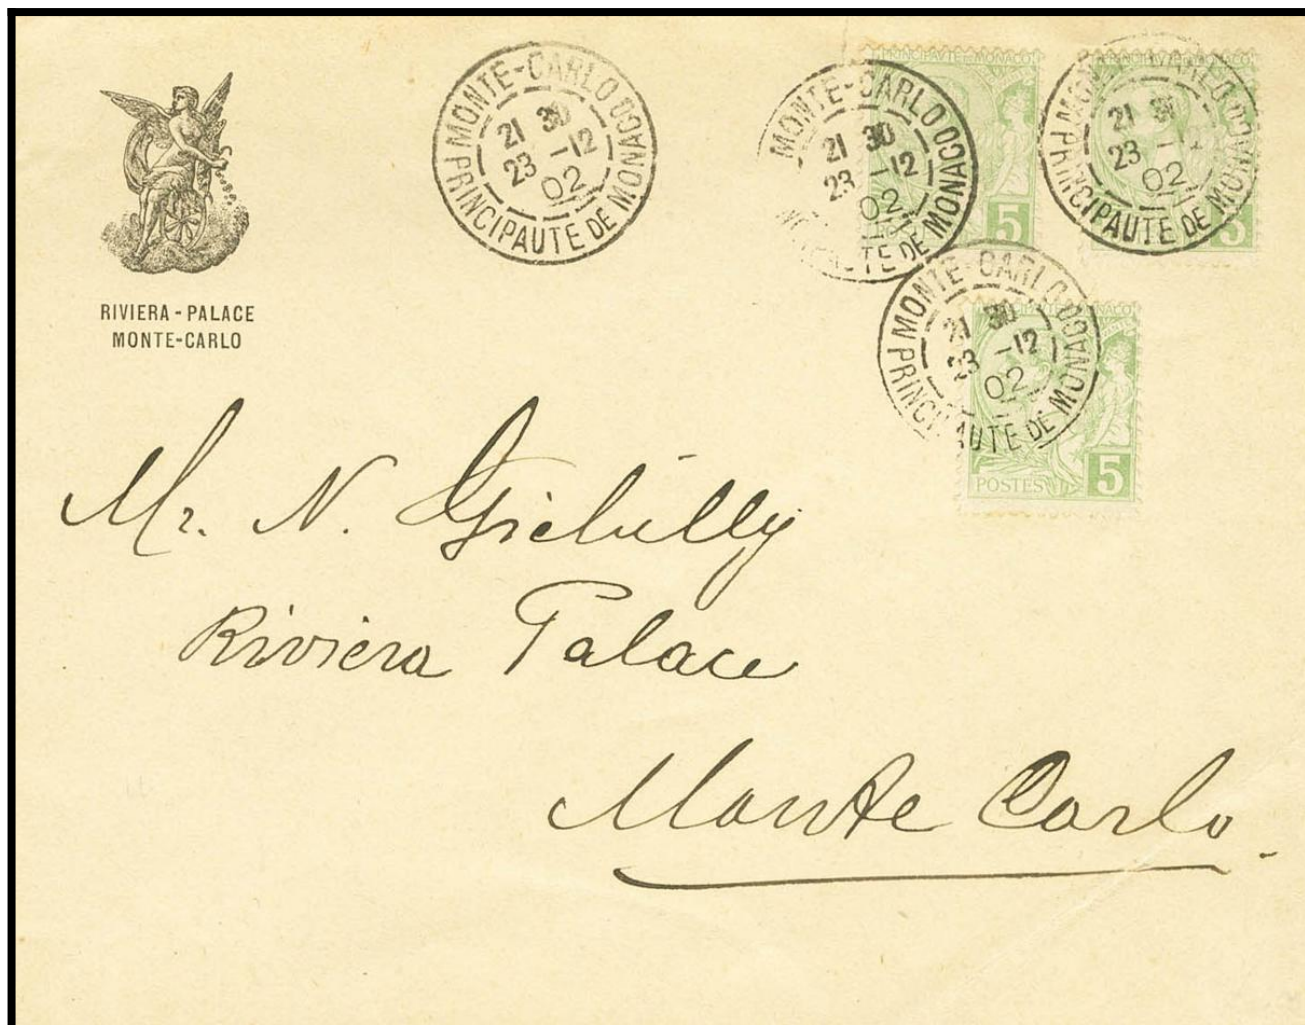 RIVIERA - PALACE
MONTE-CARLO
MONTE-CARLO
21 30
23 -12
02
PRINCIPAUTE DE MONACO
MONTE-CARLO
21 30
23 -12
02
PRINCIPAUTE DE MONACO
PRINCIPAUTE DE MONACO
5
21 30
23 -12
02
PRINCIPAUTE DE MONACO
5
MONTE-CARLO
21 30
23 -12
02
PRINCIPAUTE DE MONACO
POSTES 5
Mr. N.
Riviera Palace
Monte Carlo.